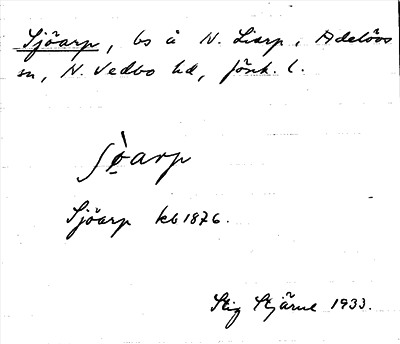 Sjöarp, bs å N. Liarp, Adelövs
sn, N. Vedbo hd, Jönk. l.
ʃö̀arp
Sjöarp kb 1876.
Stig Stjärne 1933.